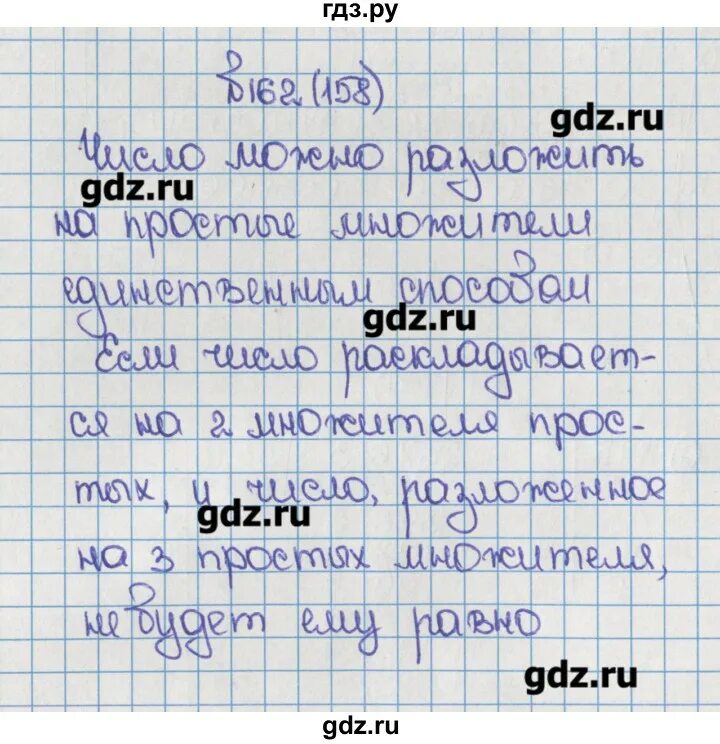 гдз.ру
162 (158)
gdz.ru
Число можно разложить
gdz.ru
на простые множители
единственным способом
gdz.ru
Если число раскладывает-
ся на 2 множителя прос-
тых, и число, разложенное
gdz.ru
на 3 простых множителя,
не будет ему равно
gdz.ru
gdz.ru